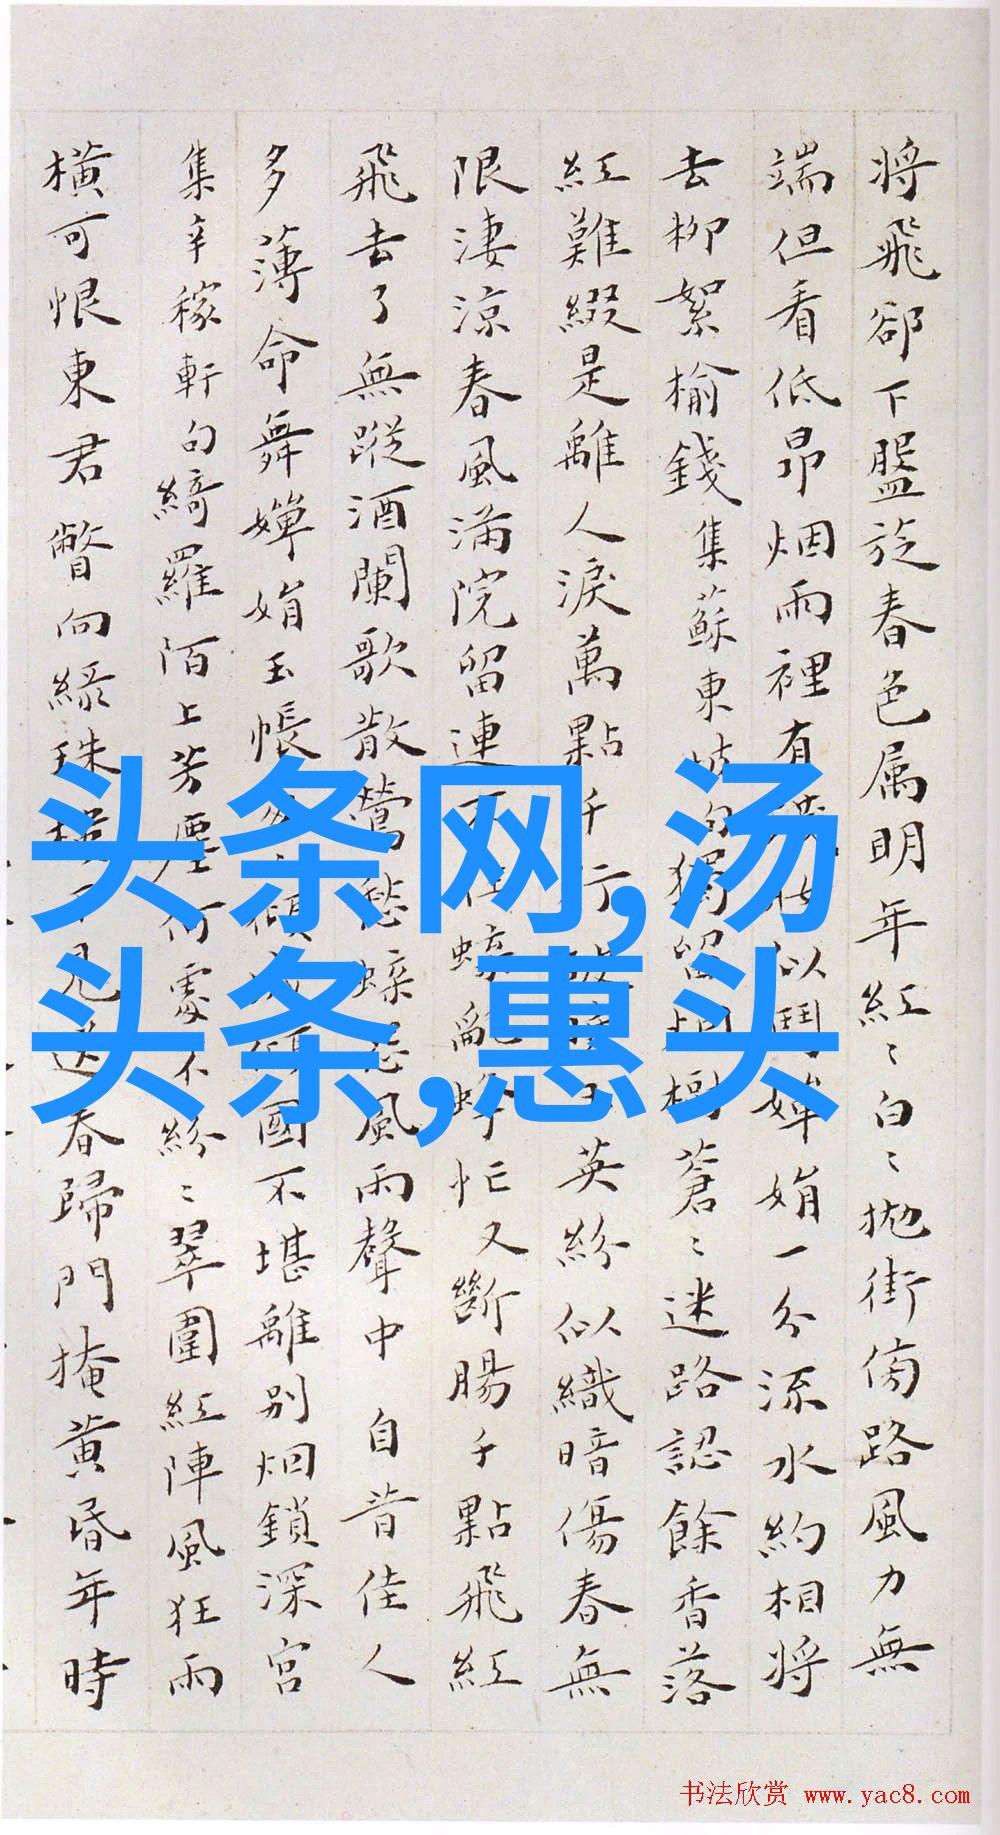 将飛郤下盤旋春色属明年紅〻白〻抛街傍路風力無
端但看低昂烟雨裡有 似鬥嬋娟一分流水約相将
去柳絮榆錢集蘇東坡句獨留 樹蒼〻迷路認餘香落
紅難綴是離人淚萬點千行 英紛似織暗傷春無
限淒涼春風滿院留連不住蜂亂蜂忙又斷腸千點飛紅
飛去了無蹤酒闌歌散鶯愁蝶 風雨聲中 自昔佳人
多薄命舞嬋娟玉帳 傾 國不堪離别烟鎖深宮
集辛稼軒句綺羅陌上芳塵何處不紛〻翠圍紅陣風狂雨
橫可恨東君瞥向緑珠樓 見送春歸門掩黄昏年時
头条网,汤
头条,惠头
书法欣赏 www.yac8.com